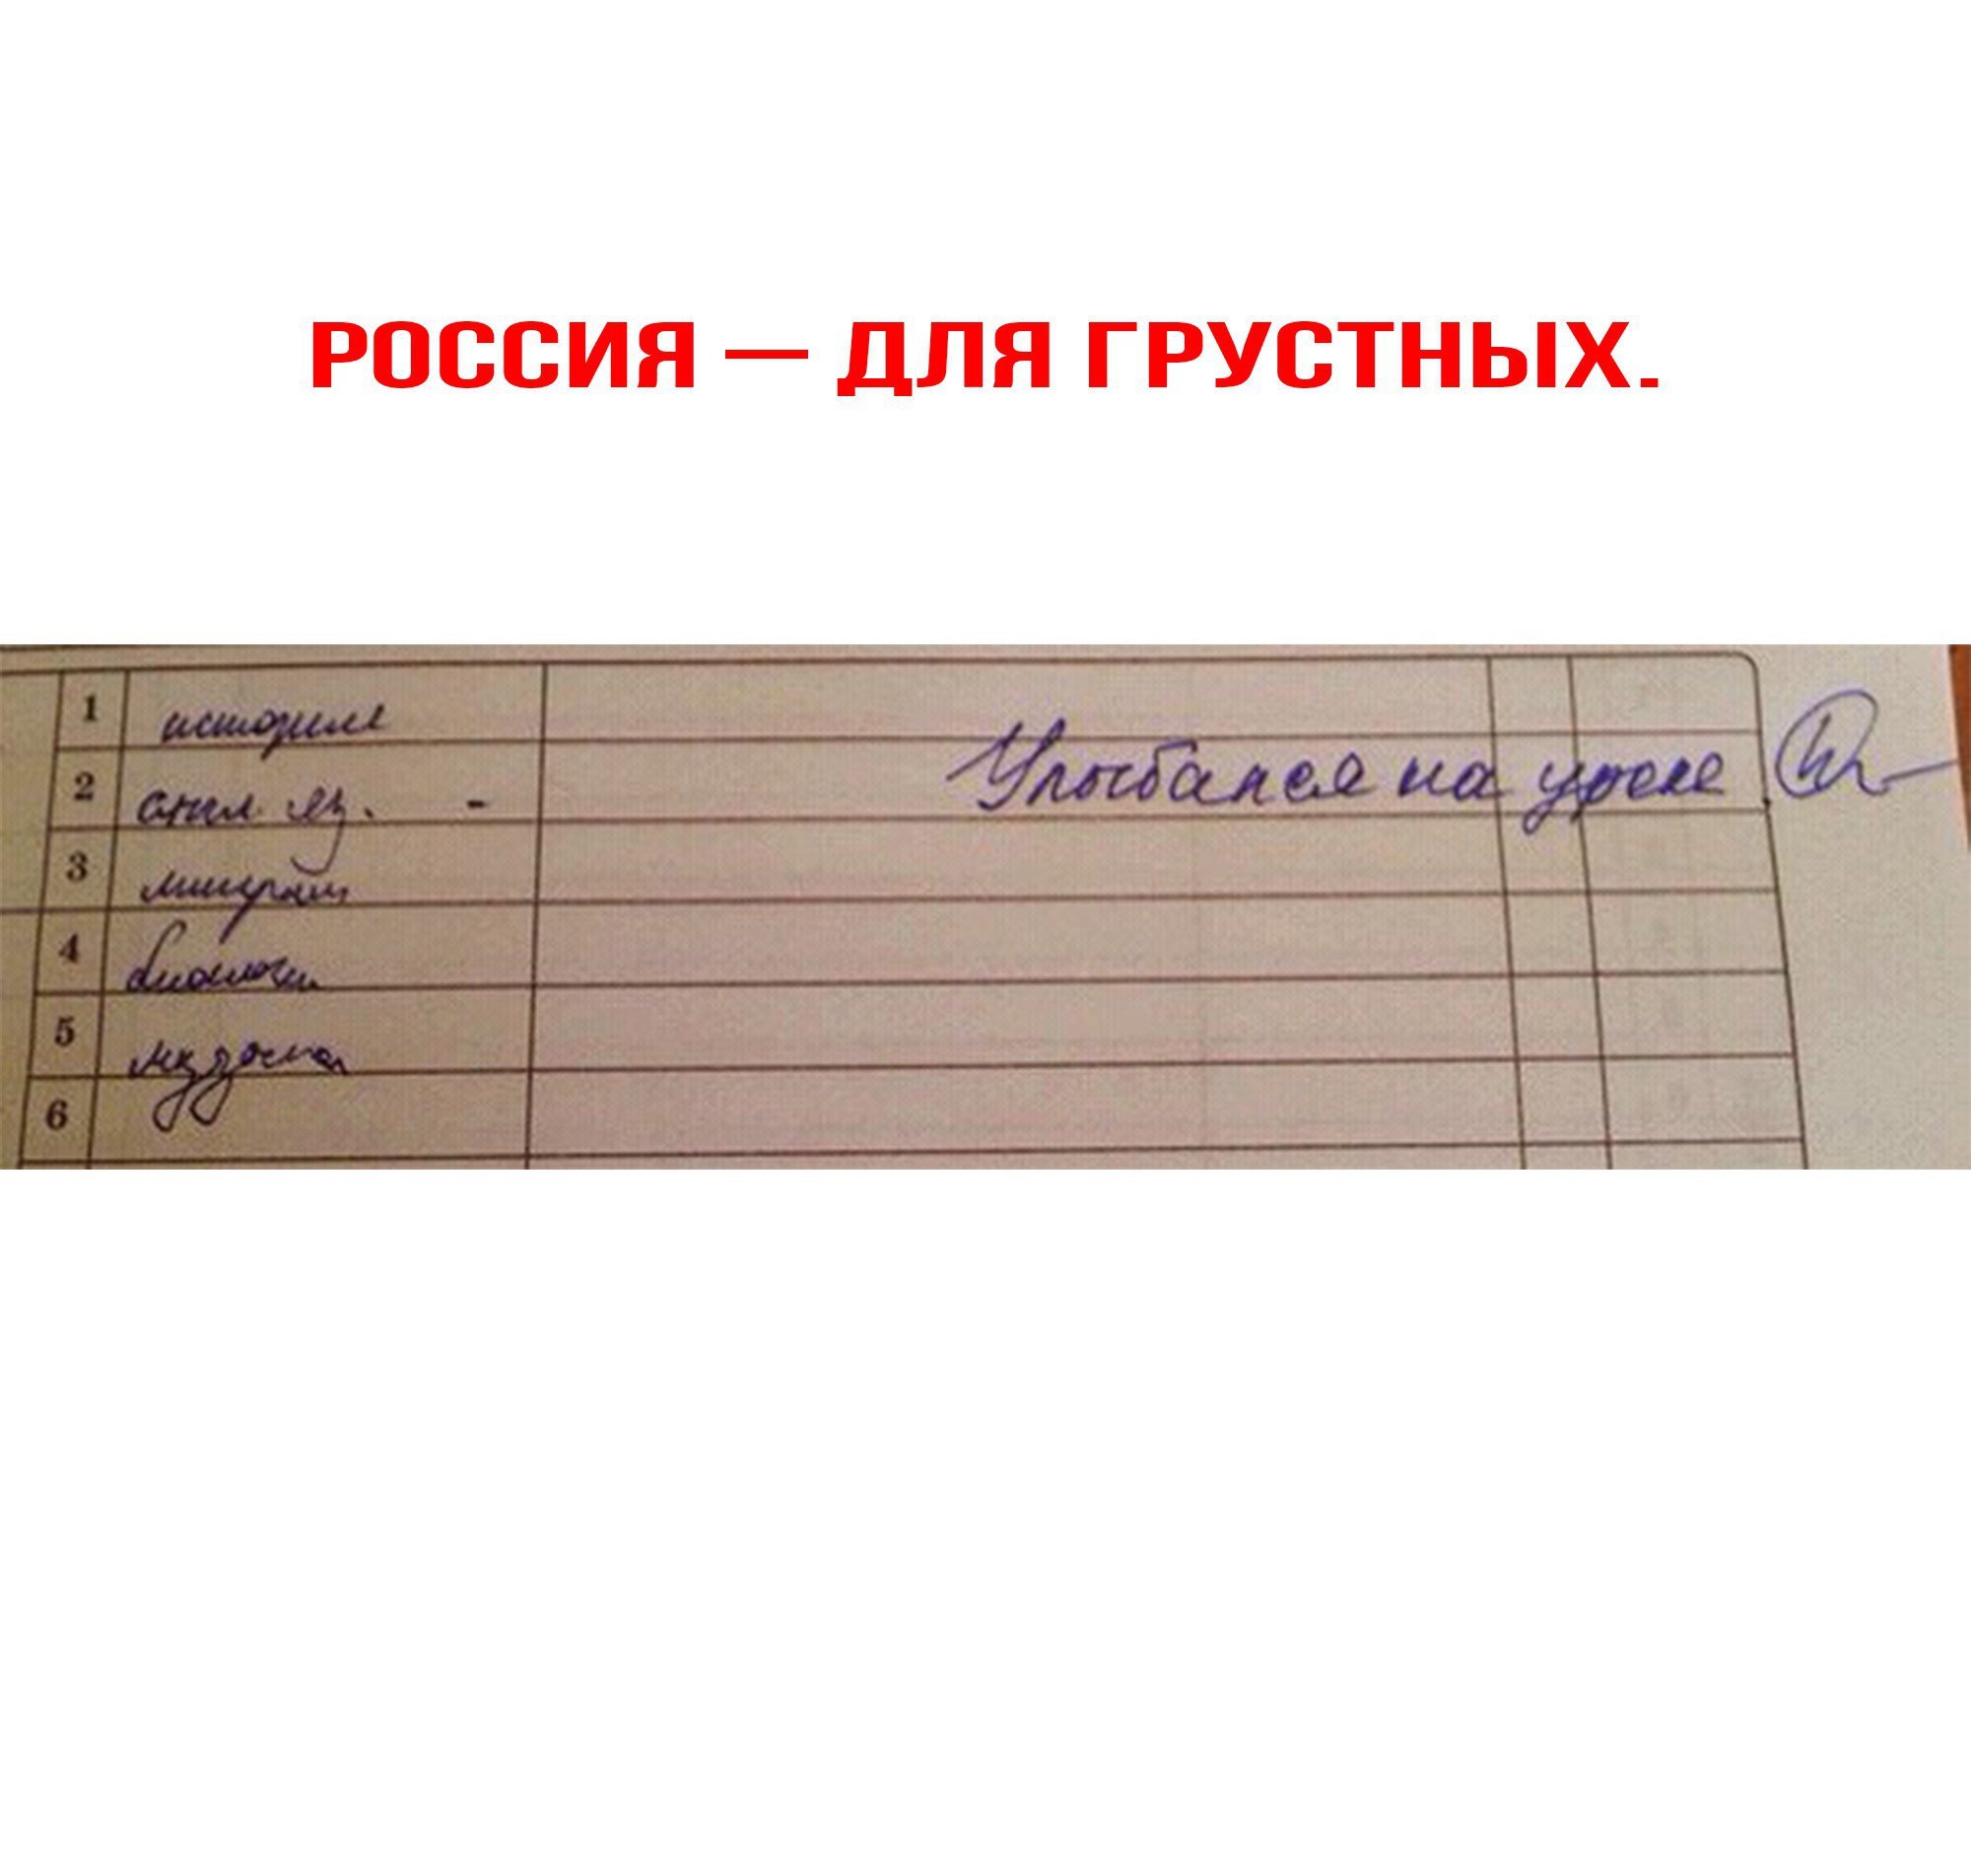 РОССИЯ — ДЛЯ ГРУСТНЫХ.
1 история
2 англ яз. - Улыбался на уроке
3 литерат
4 биологи
5 музыка
6